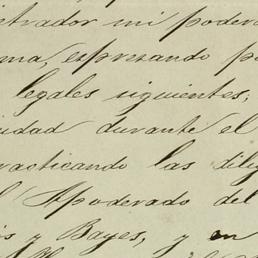 istrador mi podera
ma, espresando po
legales siguientes;
idad durante el
racticando las dilig
l Apoderado del
s y Bayes, y en